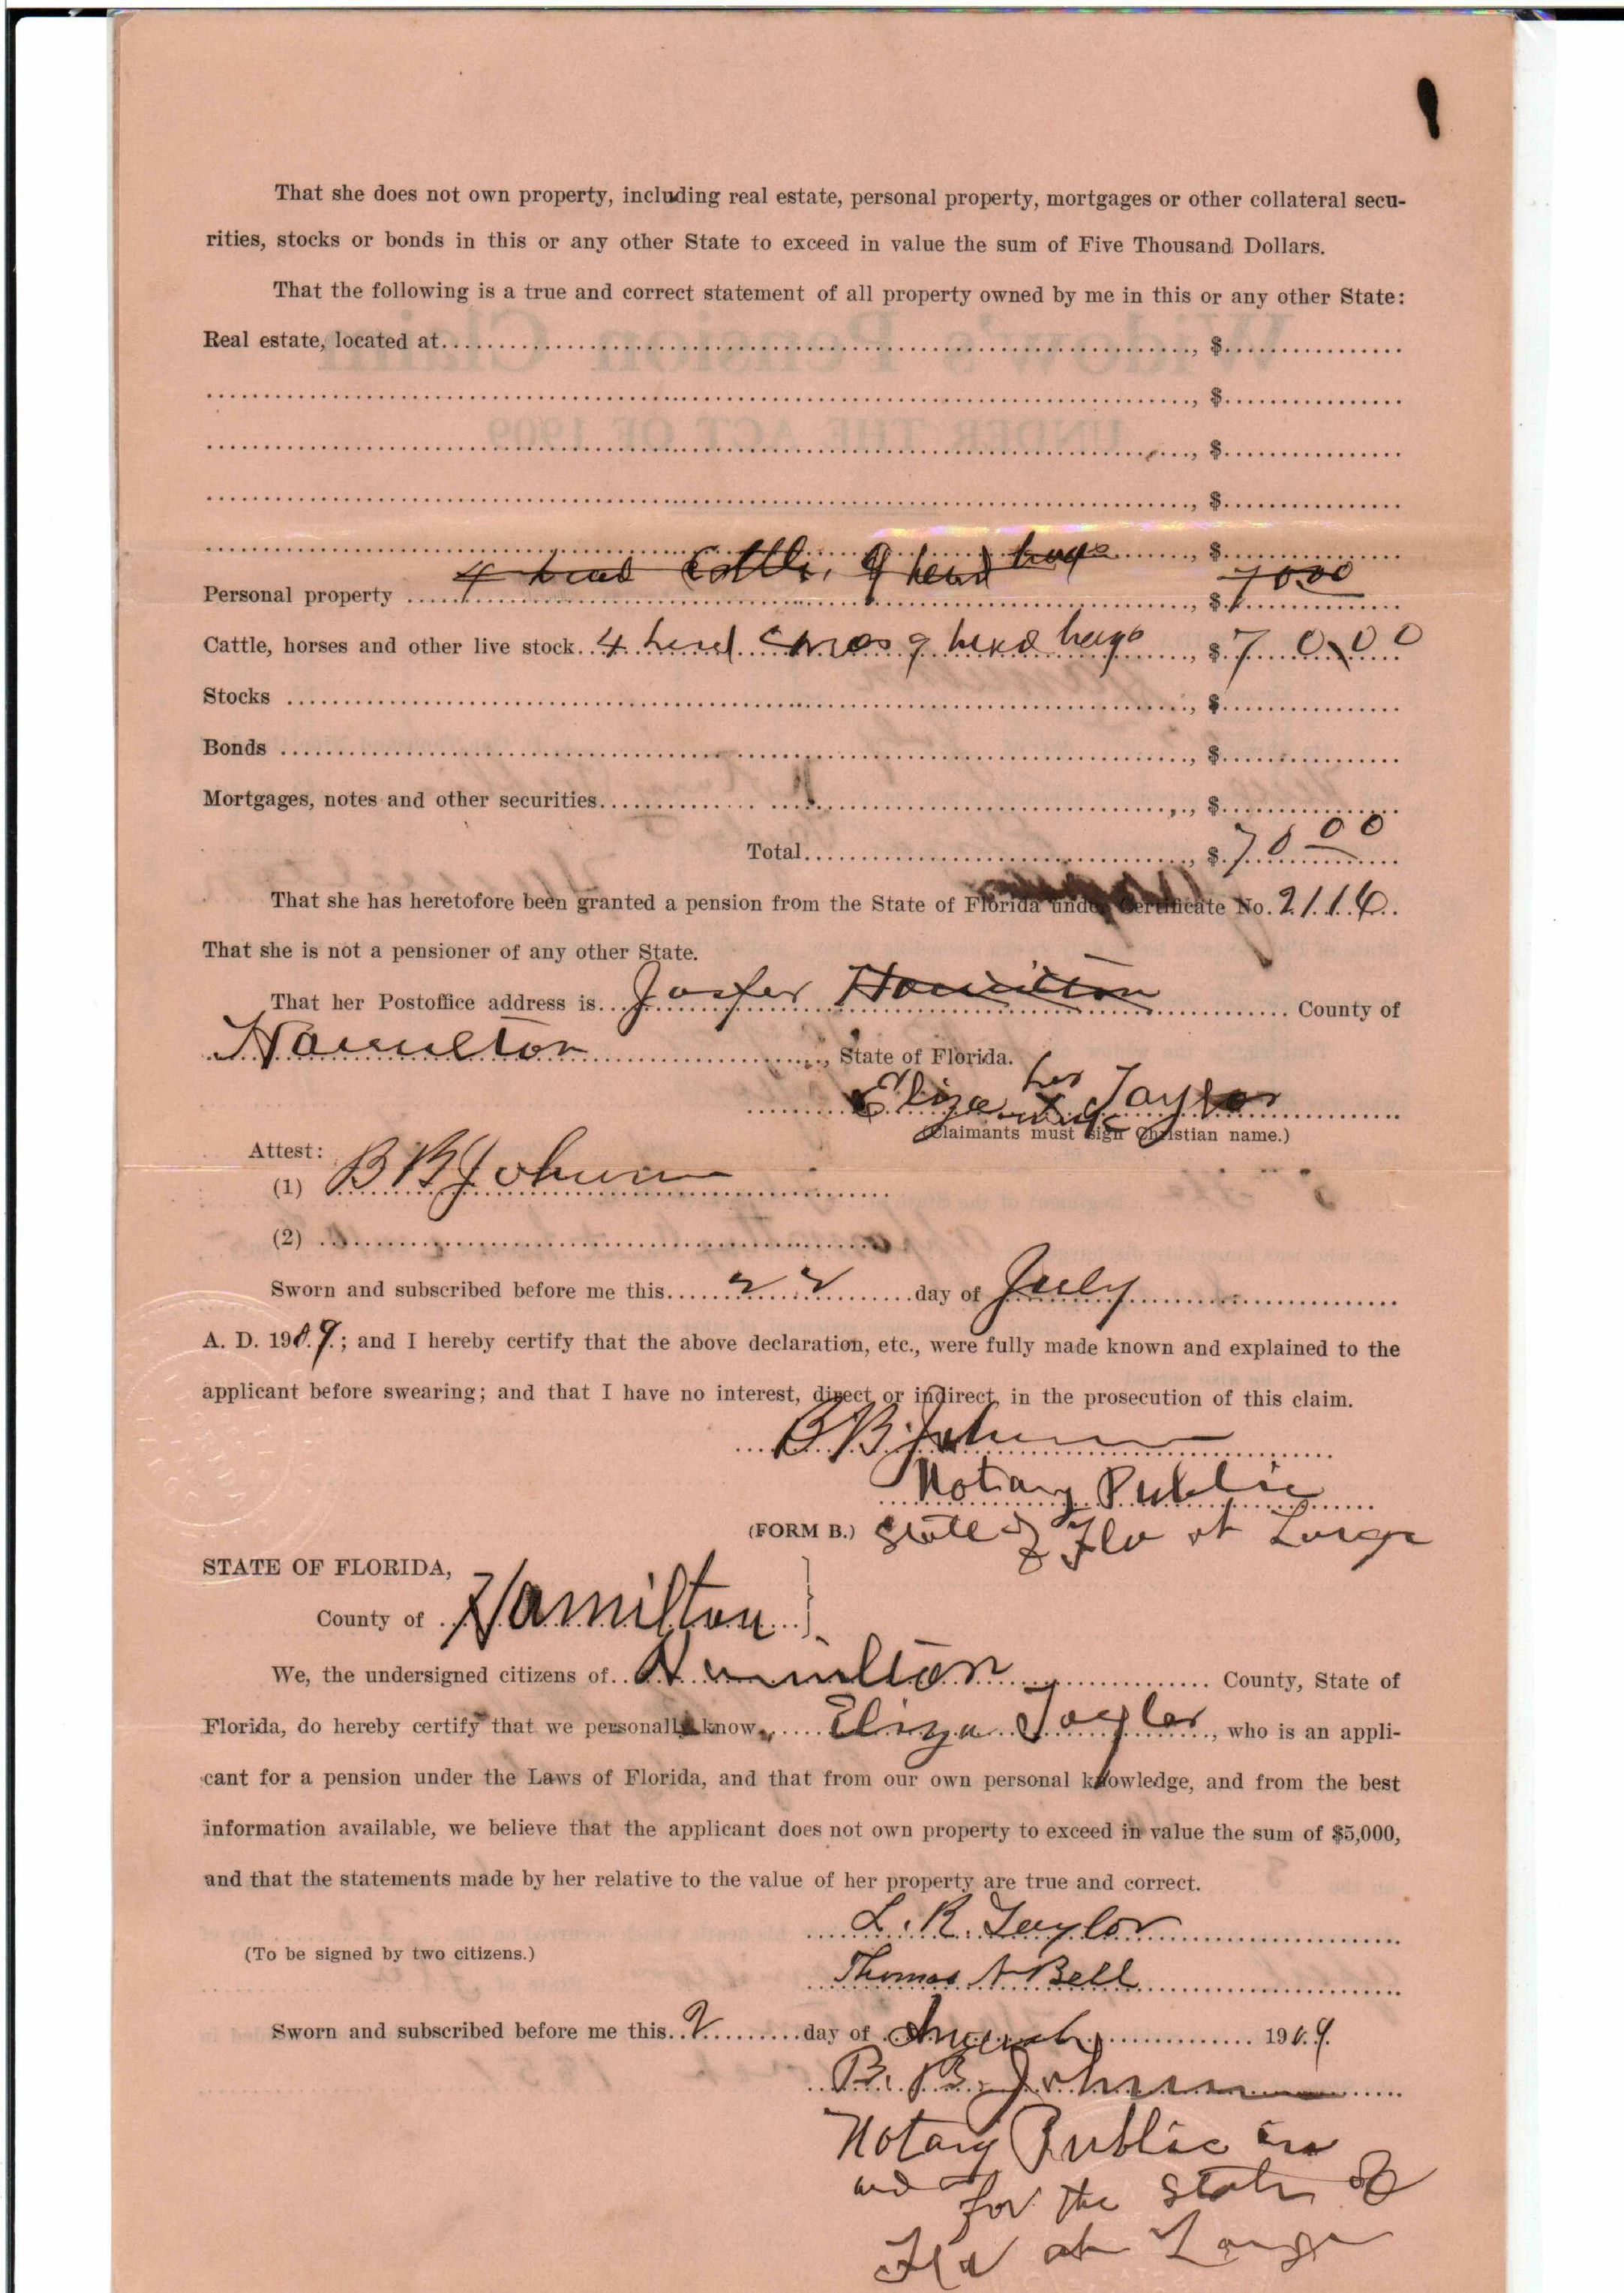 That she does not own property, including real estate, personal property, mortgages or other collateral secu-
rities, stocks or bonds in this or any other State to exceed in value the sum of Five Thousand Dollars.
That the following is a true and correct statement of all property owned by me in this or any other State:
Real estate, located at............, $............
............, $............
............, $............
............, $............
............, $............
Personal property 4 head Cattle, 9 head hogs, $70.00
Cattle, horses and other live stock 4 head cows 9 head hogs, $70.00
Stocks ............, $............
Bonds ............, $............
Mortgages, notes and other securities............, $............
Total............, $70 00
That she has heretofore been granted a pension from the State of Florida under Certificate No. 2116
That she is not a pensioner of any other State.
That her Postoffice address is Jasper Hamilton County of
Hamilton, State of Florida.
her
Eliza X Taylor
mark
(Claimants must sign Christian name.)
Attest:
(1) B B Johnson
(2) ............
Sworn and subscribed before me this 22 day of July
A. D. 1909; and I hereby certify that the above declaration, etc., were fully made known and explained to the
applicant before swearing; and that I have no interest, direct or indirect, in the prosecution of this claim.
B B Johnson
Notary Public
(FORM B.) State of Fla at Large
STATE OF FLORIDA,
County of Hamilton
We, the undersigned citizens of Hamilton County, State of
Florida, do hereby certify that we personally know Eliza Taylor, who is an appli-
cant for a pension under the Laws of Florida, and that from our own personal knowledge, and from the best
information available, we believe that the applicant does not own property to exceed in value the sum of $5,000,
and that the statements made by her relative to the value of her property are true and correct.
L. R. Taylor
(To be signed by two citizens.)
Thomas A Bell
Sworn and subscribed before me this 2 day of 1909
B. B. Johnson
Notary Public in
and
for the State of
Fla at Large
Widow's Pension Claim
UNDER THE ACT OF 1909